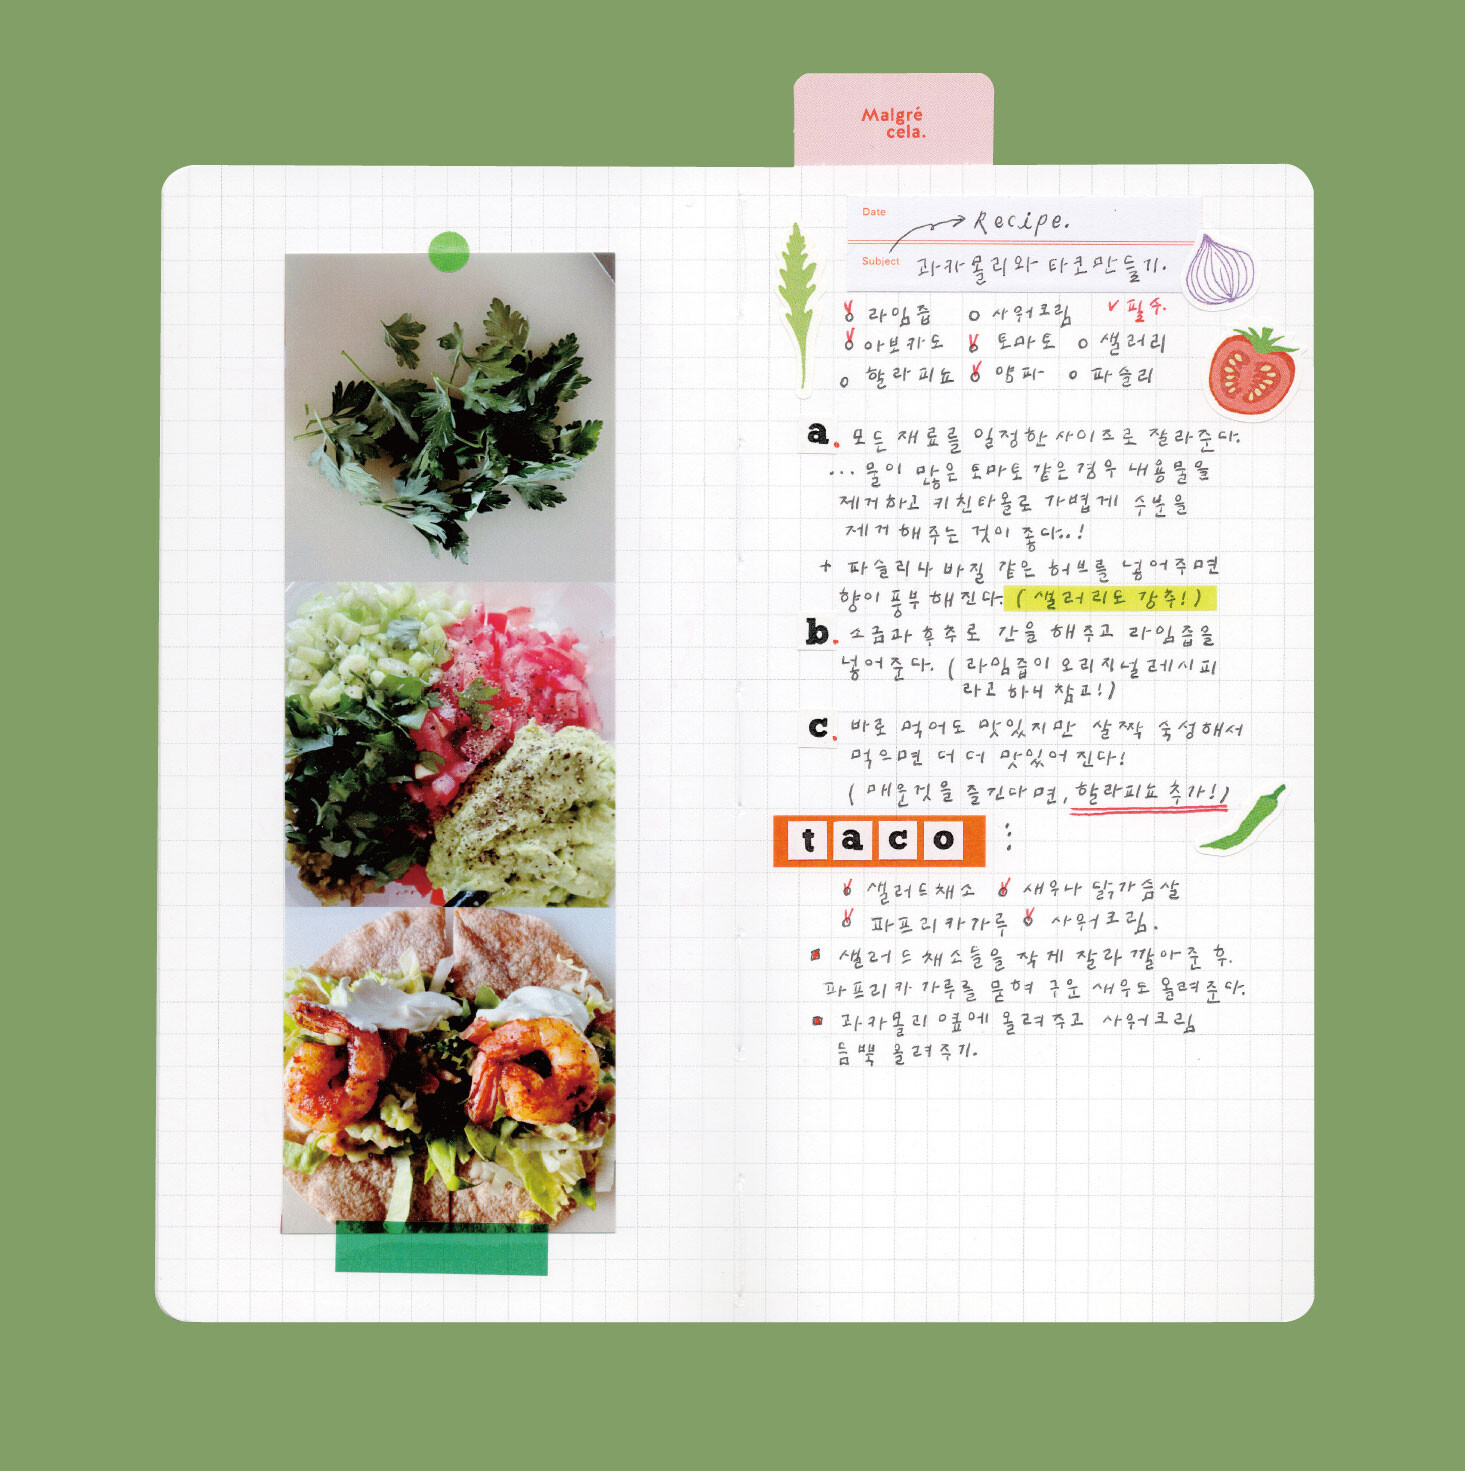 Malgré
cela.
Date
Recipe.
Subject 과카몰리와 타코만들기.
라임즙 사워크림 ✓필수.
아보카도 토마토 샐러리
할라피뇨 양파 파슬리
a. 모든 재료를 일정한 사이즈로 잘라준다.
... 물이 많은 토마토 같은 경우 내용물을
제거하고 키친타올로 가볍게 수분을
제거해주는 것이 좋다..!
+ 파슬리나 바질 같은 허브를 넣어주면
향이 풍부해진다. (샐러리도 강추!)
b. 소금과 후추로 간을 해주고 라임즙을
넣어준다. (라임즙이 오리지널레시피
라고 하니 참고!)
c. 바로 먹어도 맛있지만 살짝 숙성해서
먹으면 더 더 맛있어진다!
(매운것을 즐긴다면, 할라피뇨 추가!)
taco :
샐러드채소 새우나 닭가슴살
파프리카가루 사워크림.
샐러드채소들을 작게 잘라 깔아준 후.
파프리카 가루를 묻혀 구운 새우도 올려준다.
과카몰리 옆에 올려주고 사워크림
듬뿍 올려주기.